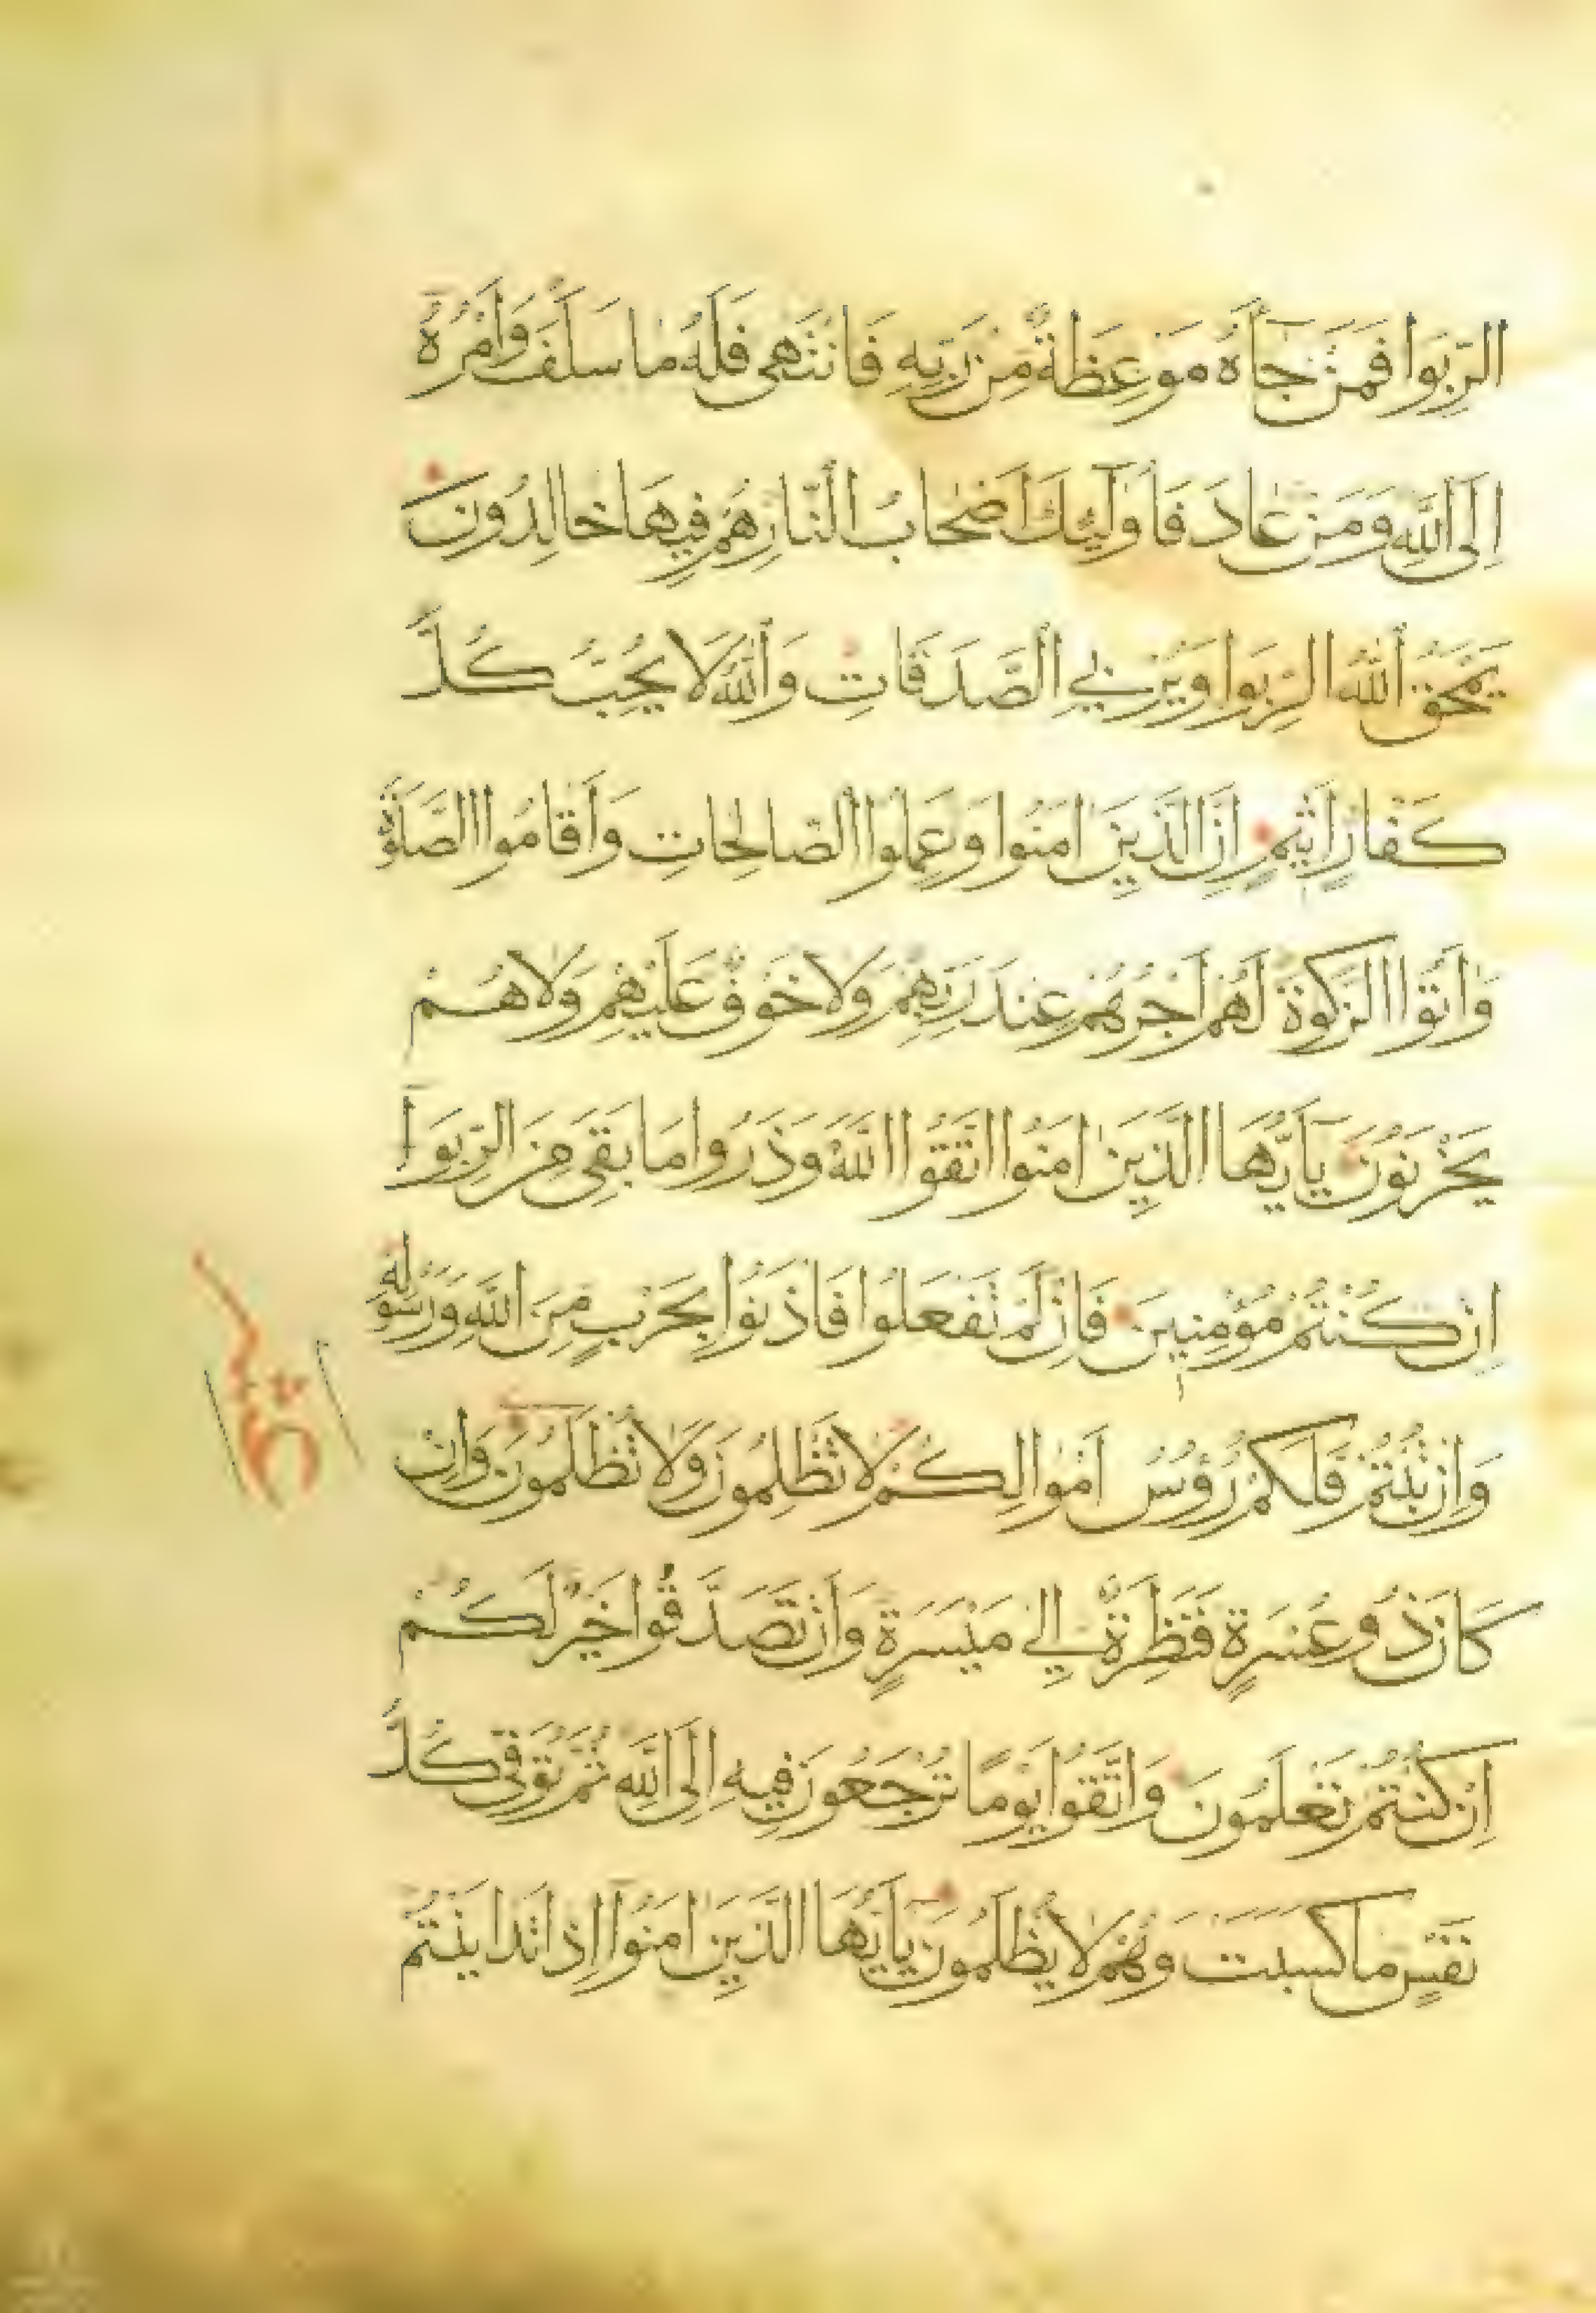 الرِّبَوا فَمَنْ جَاءَهُ مَوْعِظَةٌ مِنْ رَبِّهِ فَانْتَهَى فَلَهُ مَا سَلَفَ وَأَمْرُهُ
إِلَى اللَّهِ وَمَنْ عَادَ فَأُولَئِكَ أَصْحَابُ النَّارِ هُمْ فِيهَا خَالِدُونَ
يَمْحَقُ اللَّهُ الرِّبَوا وَيُرْبِي الصَّدَقَاتِ وَاللَّهُ لَا يُحِبُّ كُلَّ
كَفَّارٍ أَثِيمٍ إِنَّ الَّذِينَ آمَنُوا وَعَمِلُوا الصَّالِحَاتِ وَأَقَامُوا الصَّلَوةَ
وَآتَوُا الزَّكَوةَ لَهُمْ أَجْرُهُمْ عِنْدَ رَبِّهِمْ وَلَا خَوْفٌ عَلَيْهِمْ وَلَا هُمْ
يَحْزَنُونَ يَا أَيُّهَا الَّذِينَ آمَنُوا اتَّقُوا اللَّهَ وَذَرُوا مَا بَقِيَ مِنَ الرِّبَوا
إِنْ كُنْتُمْ مُؤْمِنِينَ فَإِنْ لَمْ تَفْعَلُوا فَأْذَنُوا بِحَرْبٍ مِنَ اللَّهِ وَرَسُولِهِ
وَإِنْ تُبْتُمْ فَلَكُمْ رُؤُسُ أَمْوَالِكُمْ لَا تَظْلِمُونَ وَلَا تُظْلَمُونَ وَإِنْ
كَانَ ذُو عُسْرَةٍ فَنَظِرَةٌ إِلَى مَيْسَرَةٍ وَأَنْ تَصَدَّقُوا خَيْرٌ لَكُمْ
إِنْ كُنْتُمْ تَعْلَمُونَ وَاتَّقُوا يَوْمًا تُرْجَعُونَ فِيهِ إِلَى اللَّهِ ثُمَّ تُوَفَّى كُلُّ
نَفْسٍ مَا كَسَبَتْ وَهُمْ لَا يُظْلَمُونَ يَا أَيُّهَا الَّذِينَ آمَنُوا إِذَا تَدَايَنْتُمْ